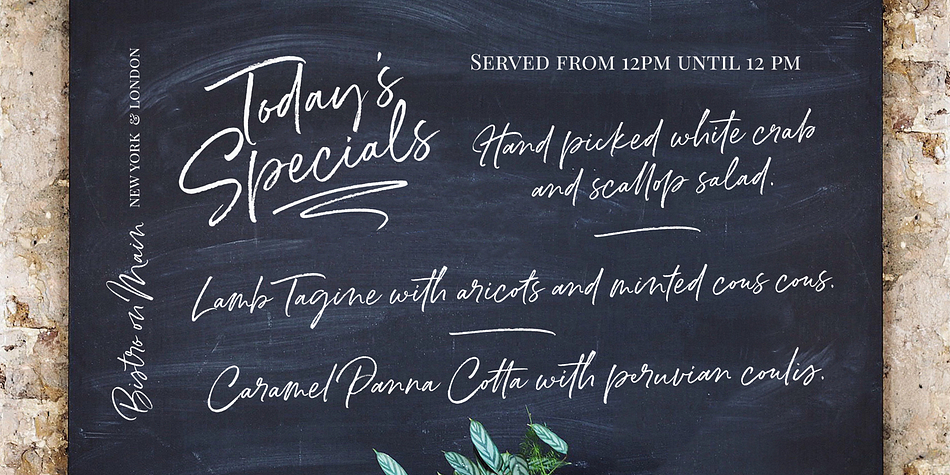 Today's
Specials
SERVED FROM 12PM UNTIL 12 PM
Hand picked white crab
and scallop salad.
Lamb Tagine with aricots and minted cous cous.
Caramel Panna Cotta with peruvian coulis.
Bistro on Main NEW YORK & LONDON